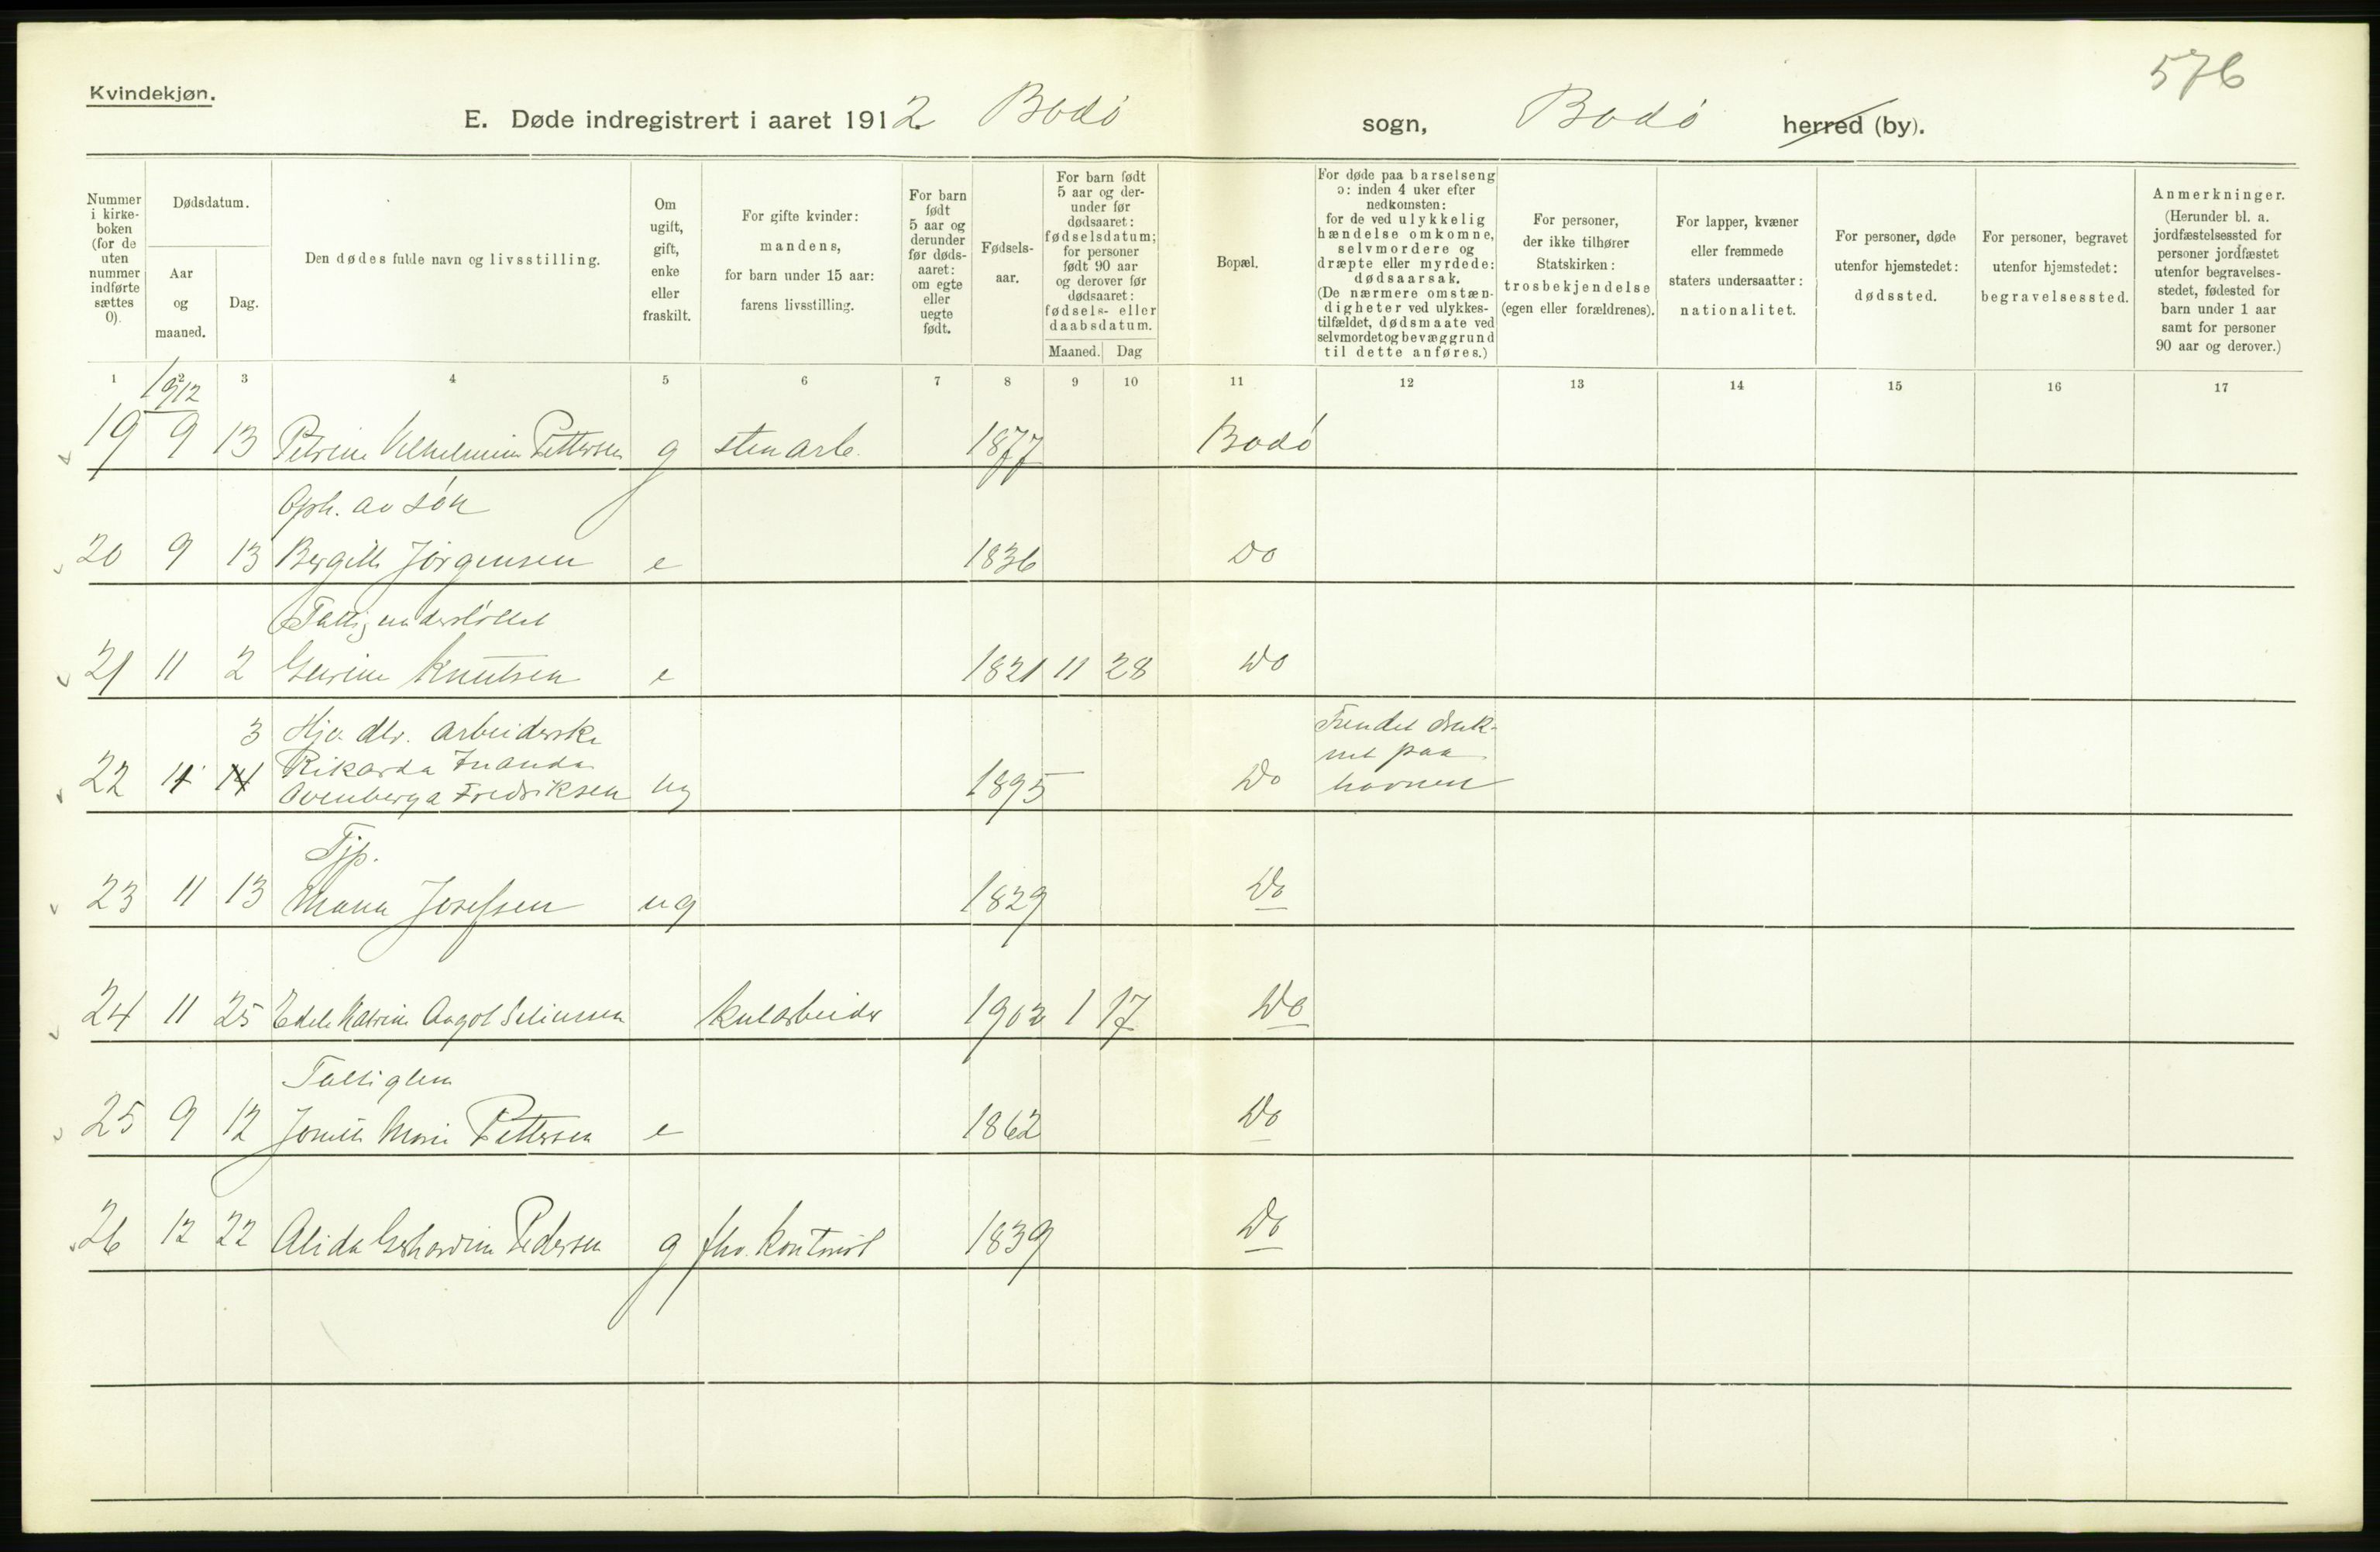 576
Kvindekjøn.
E. Døde indregistrert i aaret 1912. Bodø sogn, Bodø herred (by).
Nummer i kirkeboken (for de uten nummer indførte sættes 0).
Dødsdatum.
Aar og maaned.
Dag.
Den dødes fulde navn og livsstilling.
Om ugift, gift, enke eller fraskilt.
For gifte kvinder: mandens, for barn under 15 aar: farens livsstilling.
For barn født 5 aar og derunder før dødsaaret: om egte eller uegte født.
Fødselsaar.
For barn født 5 aar og derunder før dødsaaret: fødselsdatum; for personer født 90 aar og derover før dødsaaret: fødsels- eller daabsdatum.
Maaned. Dag
Bopæl.
For døde paa barselseng ɔ: inden 4 uker efter nedkomsten: for de ved ulykkelig hændelse omkomne, selvmordere og dræpte eller myrdede: dødsaarsak. (De nærmere omstændigheter ved ulykkestilfældet, dødsmaate ved selvmordet og bevæggrund til dette anføres.)
For personer, der ikke tilhører Statskirken: trosbekjendelse (egen eller forældrenes).
For lapper, kvæner eller fremmede staters undersaatter: nationalitet.
For personer, døde utenfor hjemstedet: dødssted.
For personer, begravet utenfor hjemstedet: begravelsessted.
Anmerkninger. (Herunder bl. a. jordfæstelsessted for personer jordfæstet utenfor begravelsesstedet, fødested for barn under 1 aar samt for personer 90 aar og derover.)
1 2 3 4 5 6 7 8 9 10 11 12 13 14 15 16 17
1912
19 9 13 Petrine Vilhelmine Pettersen g stenarb. 1877 Bodø
Oph. av søn
20 9 13 Bergitte Jörgensen e 1836 Do
Fattigunderstöttet
21 11 2 Knutsen e 1821 11 28 Do
3 Hjv. dtr. arbeiderske Fundet druk-
22 11 14 Rikarda Inanda net paa
Ovenberga Fredriksen ug 1895 Do havnen
Tjp.
23 11 13 Josefsen ug 1829 Do
24 11 25 Edele Katrine Angot kularbeider 1902 1 17 Do
Fattiglem
25 9 12 Marie Pettersen e 1862 Do
26 12 22 Alida Gerhardine Pedersen g fhv. 1839 Do